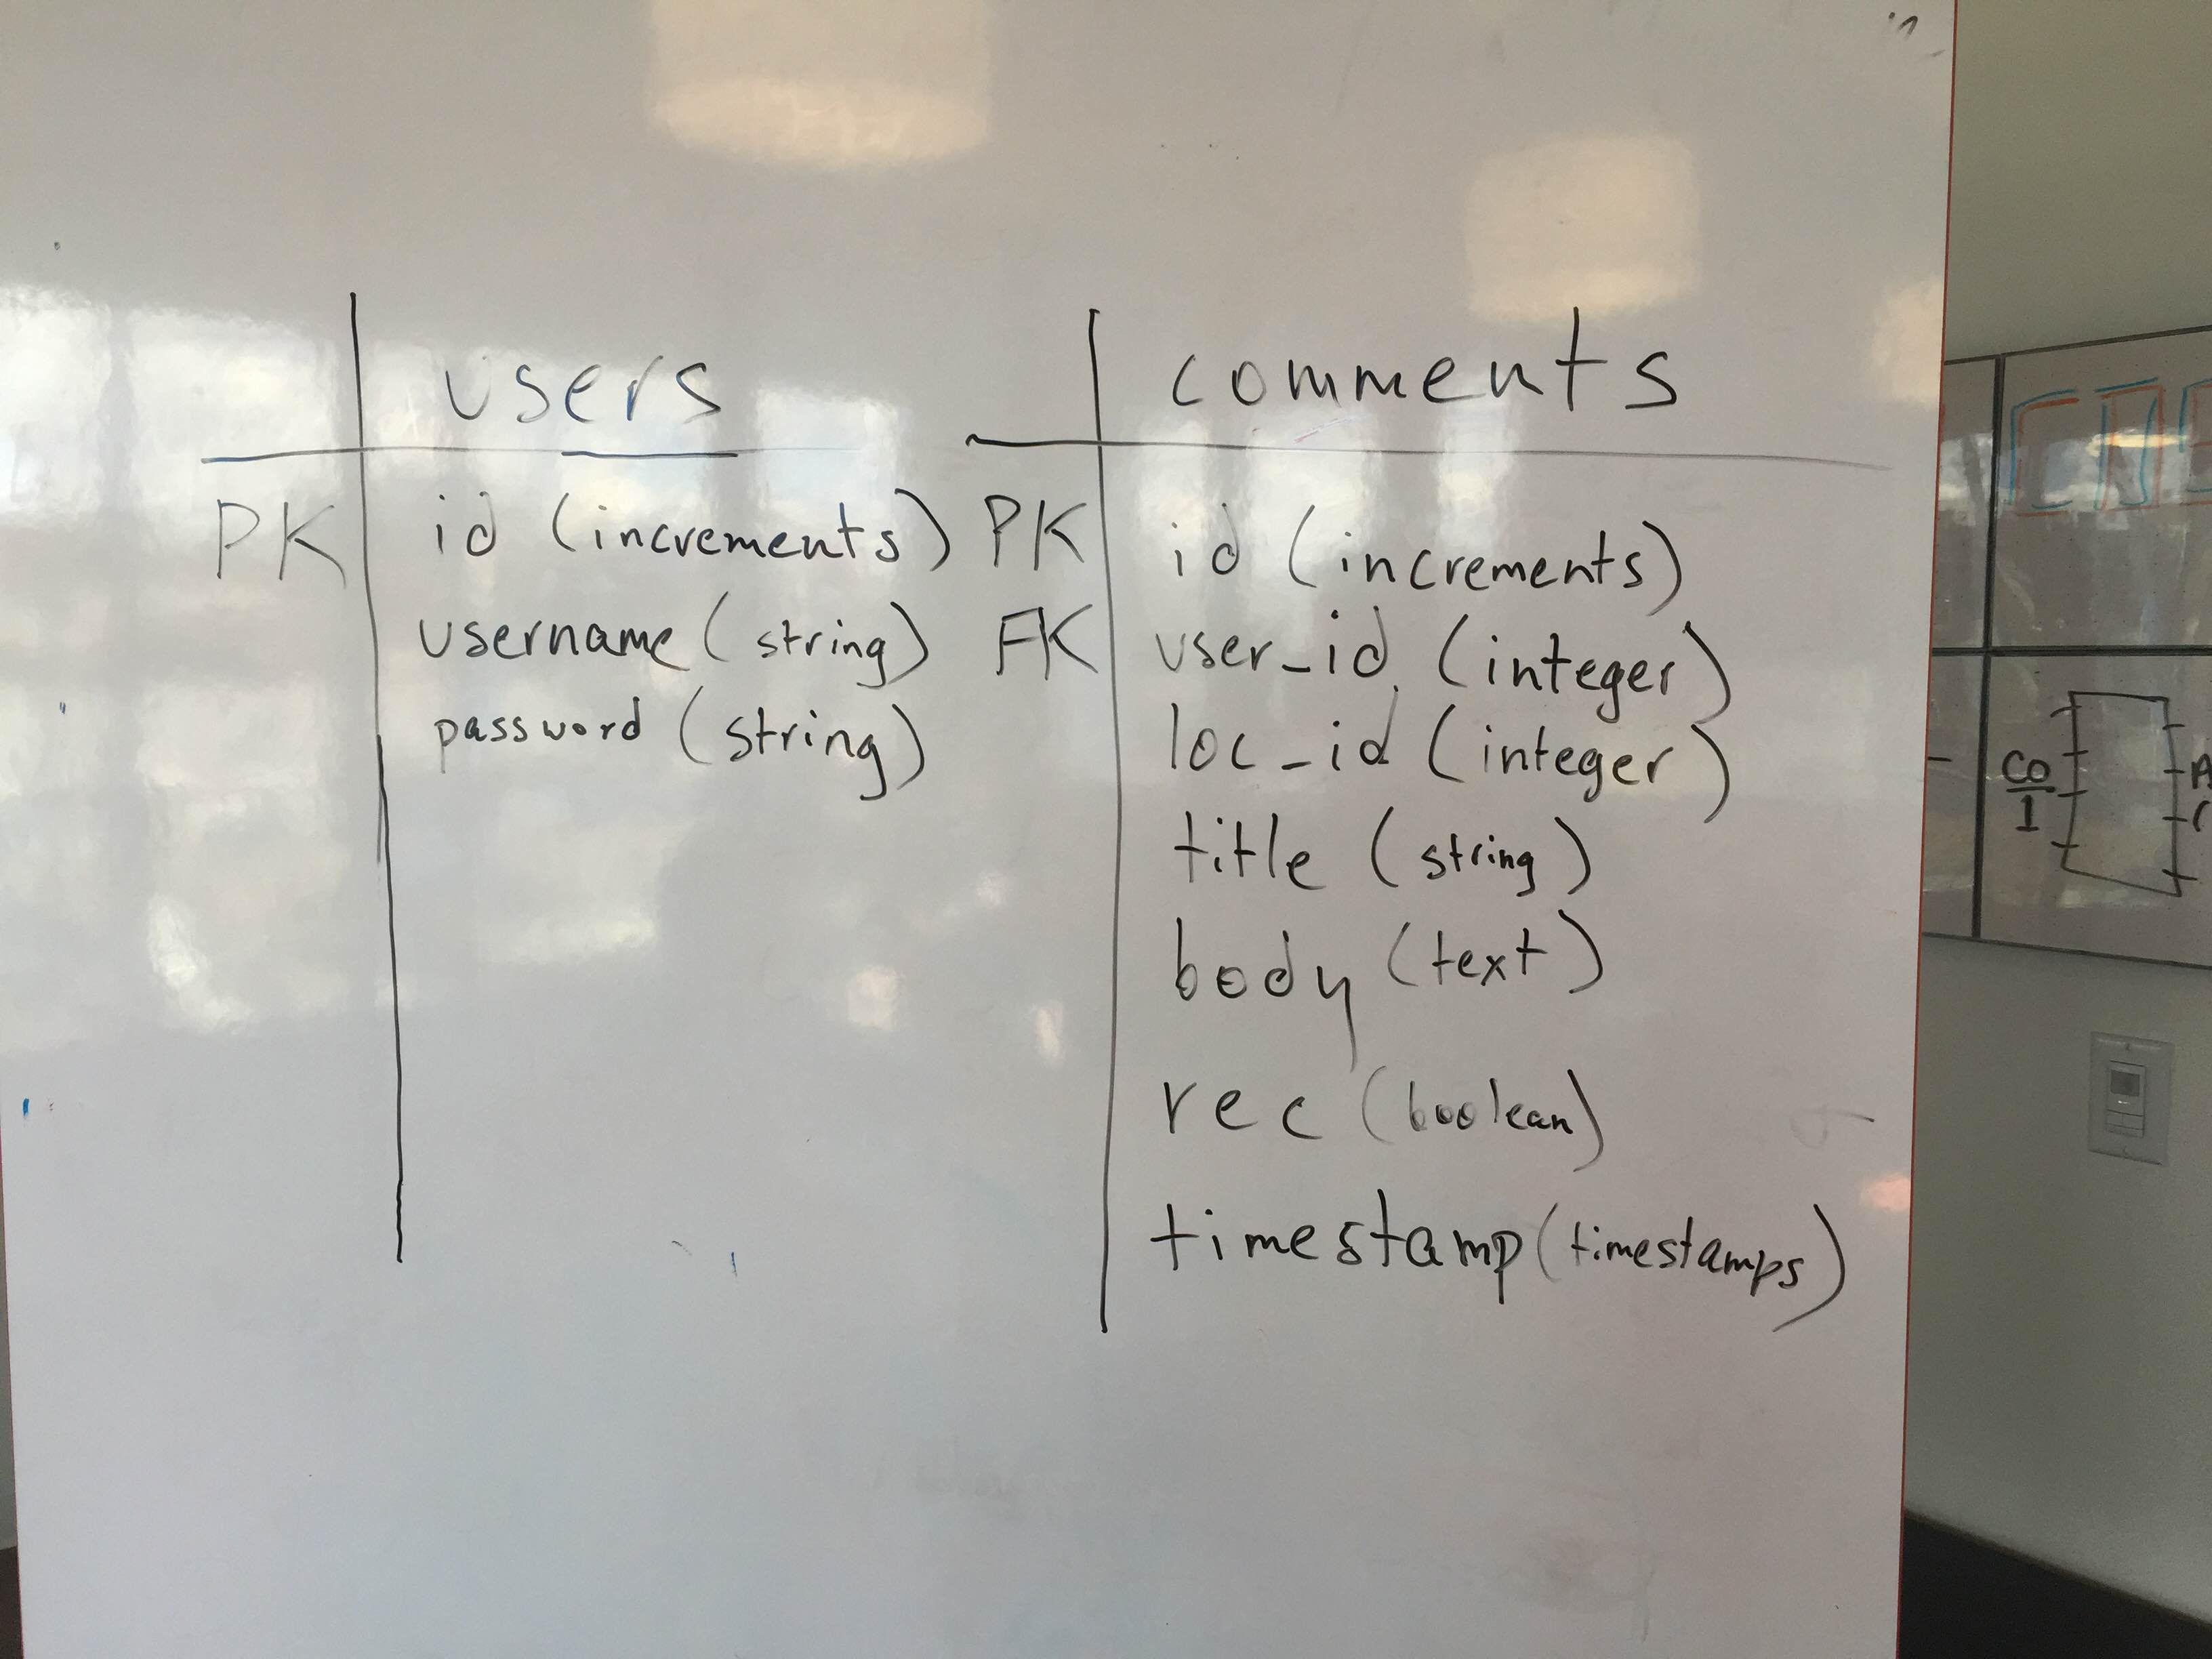 users
PK id (increments)
username (string)
password (string)
comments
PK id (increments)
FK user_id (integer)
loc_id (integer)
title (string)
body (text)
rec (boolean)
timestamp (timestamps)
CO
I